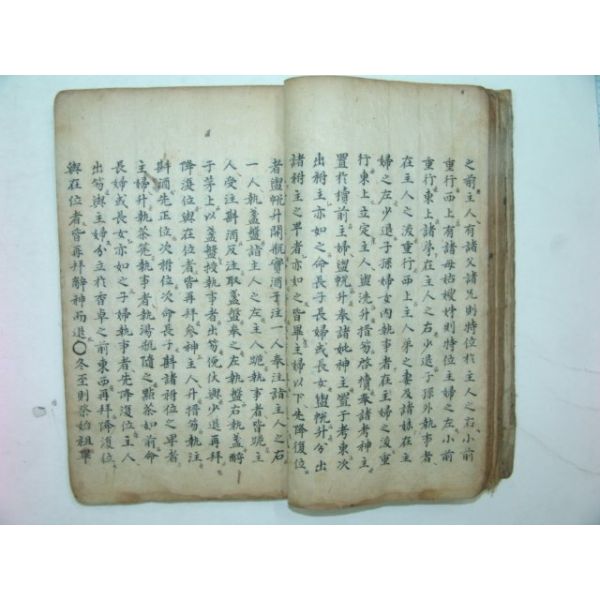 之前主人有諸父諸兄則特位於主人之右小前
重行西上有諸母姑嫂姊則特位主婦之左小前
重行東上諸弟在主人之右少退子孫外執事者
在主人之後重行西上主人弟之妻及諸妹在主
婦之左少退子孫婦女內執事者在主婦之後重
行東上立定主人盥洗升搢笏啓櫝奉諸考神主
置於櫝前主婦盥帨升奉諸妣神主置于考東次
出祔主亦如之命長子長婦或長女盥帨升分出
諸祔主之卑者亦如之皆畢主婦以下先降復位
者盥帨升開瓶實酒于注一人奉注詣主人之右
一人執盞盤詣主人之左主人跪執事者皆跪主
人受注斟酒反注取盞盤奉之左執盤右執盞酹
于茅上以盞盤授執事者出笏俛伏興少退再拜
降復位與在位者皆再拜參神主人升搢笏執注
斟酒先正位次祔位次命長子斟諸祔位之卑者
主婦升執茶筅執事者執湯瓶隨之點茶如前命
長婦或長女亦如之子婦執事者先降復位主人
出笏與主婦分立於香卓之前東西再拜降復位
與在位者皆再拜辭神而退○冬至則祭始祖畢